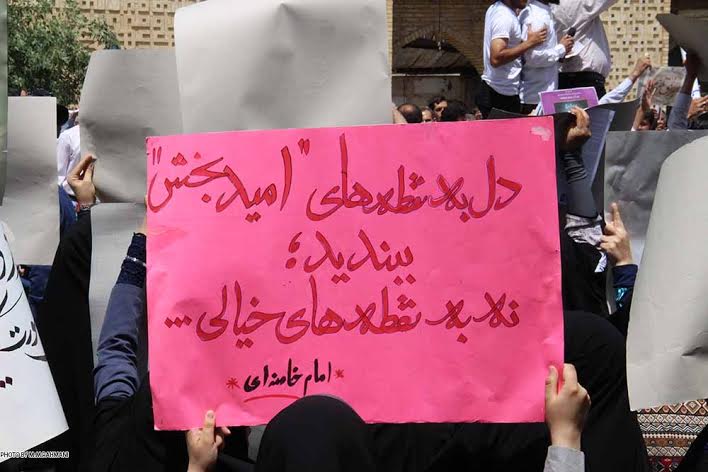 دل به نقطه‌های "امید بخش"
ببندید؛
نه به نقطه‌های خیالی...
* امام خامنه‌ای *
PHOTO BY:M.M.GAHMANI